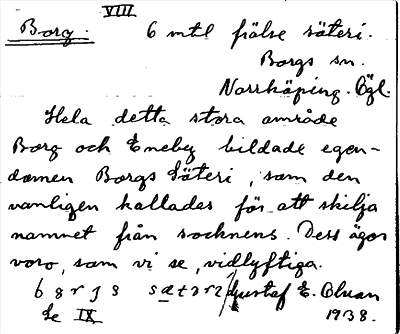 VIII
Borg. 6 mtl frälse säteri.
Borgs sn.
Norrköping. Ögl.
Hela detta stora område
Borg och Eneby bildade egen-
domen Borgs Säteri, som den
vanligen kallades för att skilja
namnet från socknens. Dess ägor
voro, som vi se, vidlyftiga.
Gustaf E. Olsson
Se IX 1938.